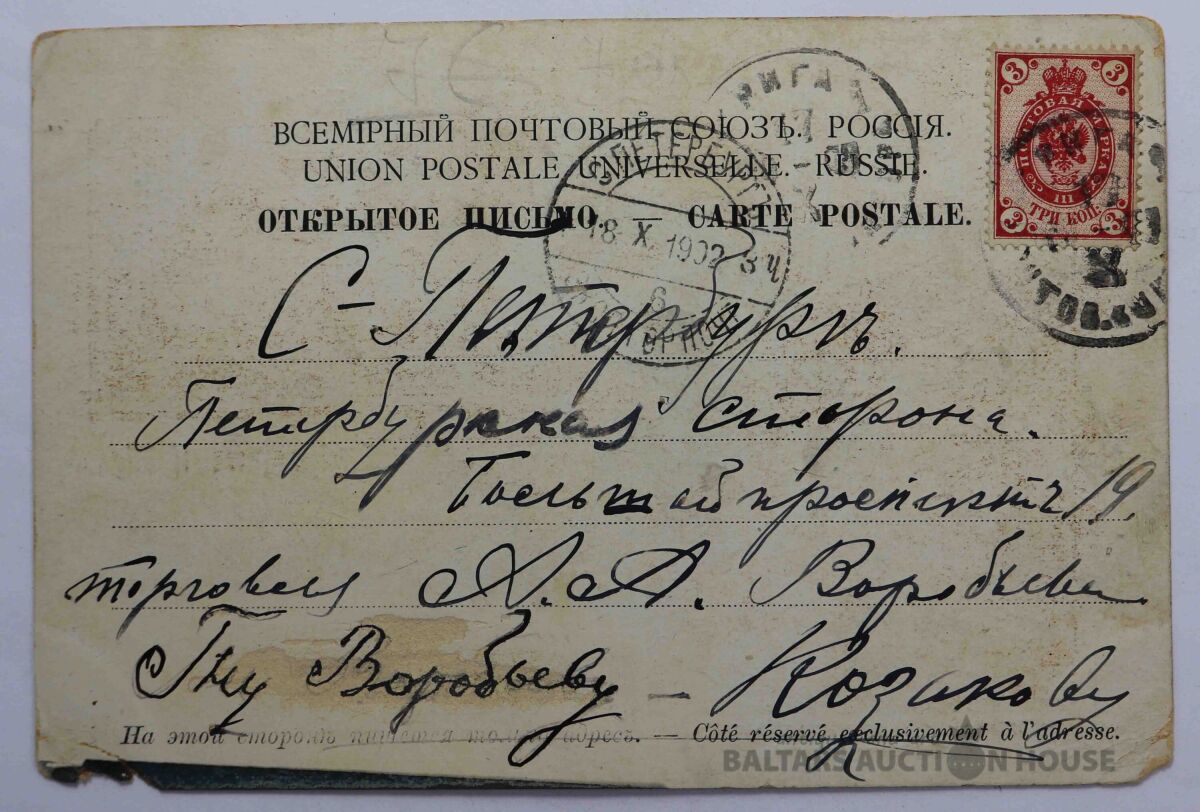 ВСЕМІРНЫЙ ПОЧТОВЫЙ СОЮЗЪ. РОССІЯ.
UNION POSTALE UNIVERSELLE. RUSSIE.
ОТКРЫТОЕ ПИСЬМО. — CARTE POSTALE.
3 3
ПОЧТОВАЯ МАРКА
III
ТРИ КОП.
3 3
РИГА
С.ПЕТЕРБУРГЪ
18 X 1902 3 Ч
6
С-Петербургъ.
Петербургская сторона.
Большой проспектъ 19.
торговля А. А. Воробьева
Гну Воробьеву — Козакову
На этой сторонѣ пишется только адресъ. — Côté réservé exclusivement à l'adresse.
BALTARS AUCTION HOUSE